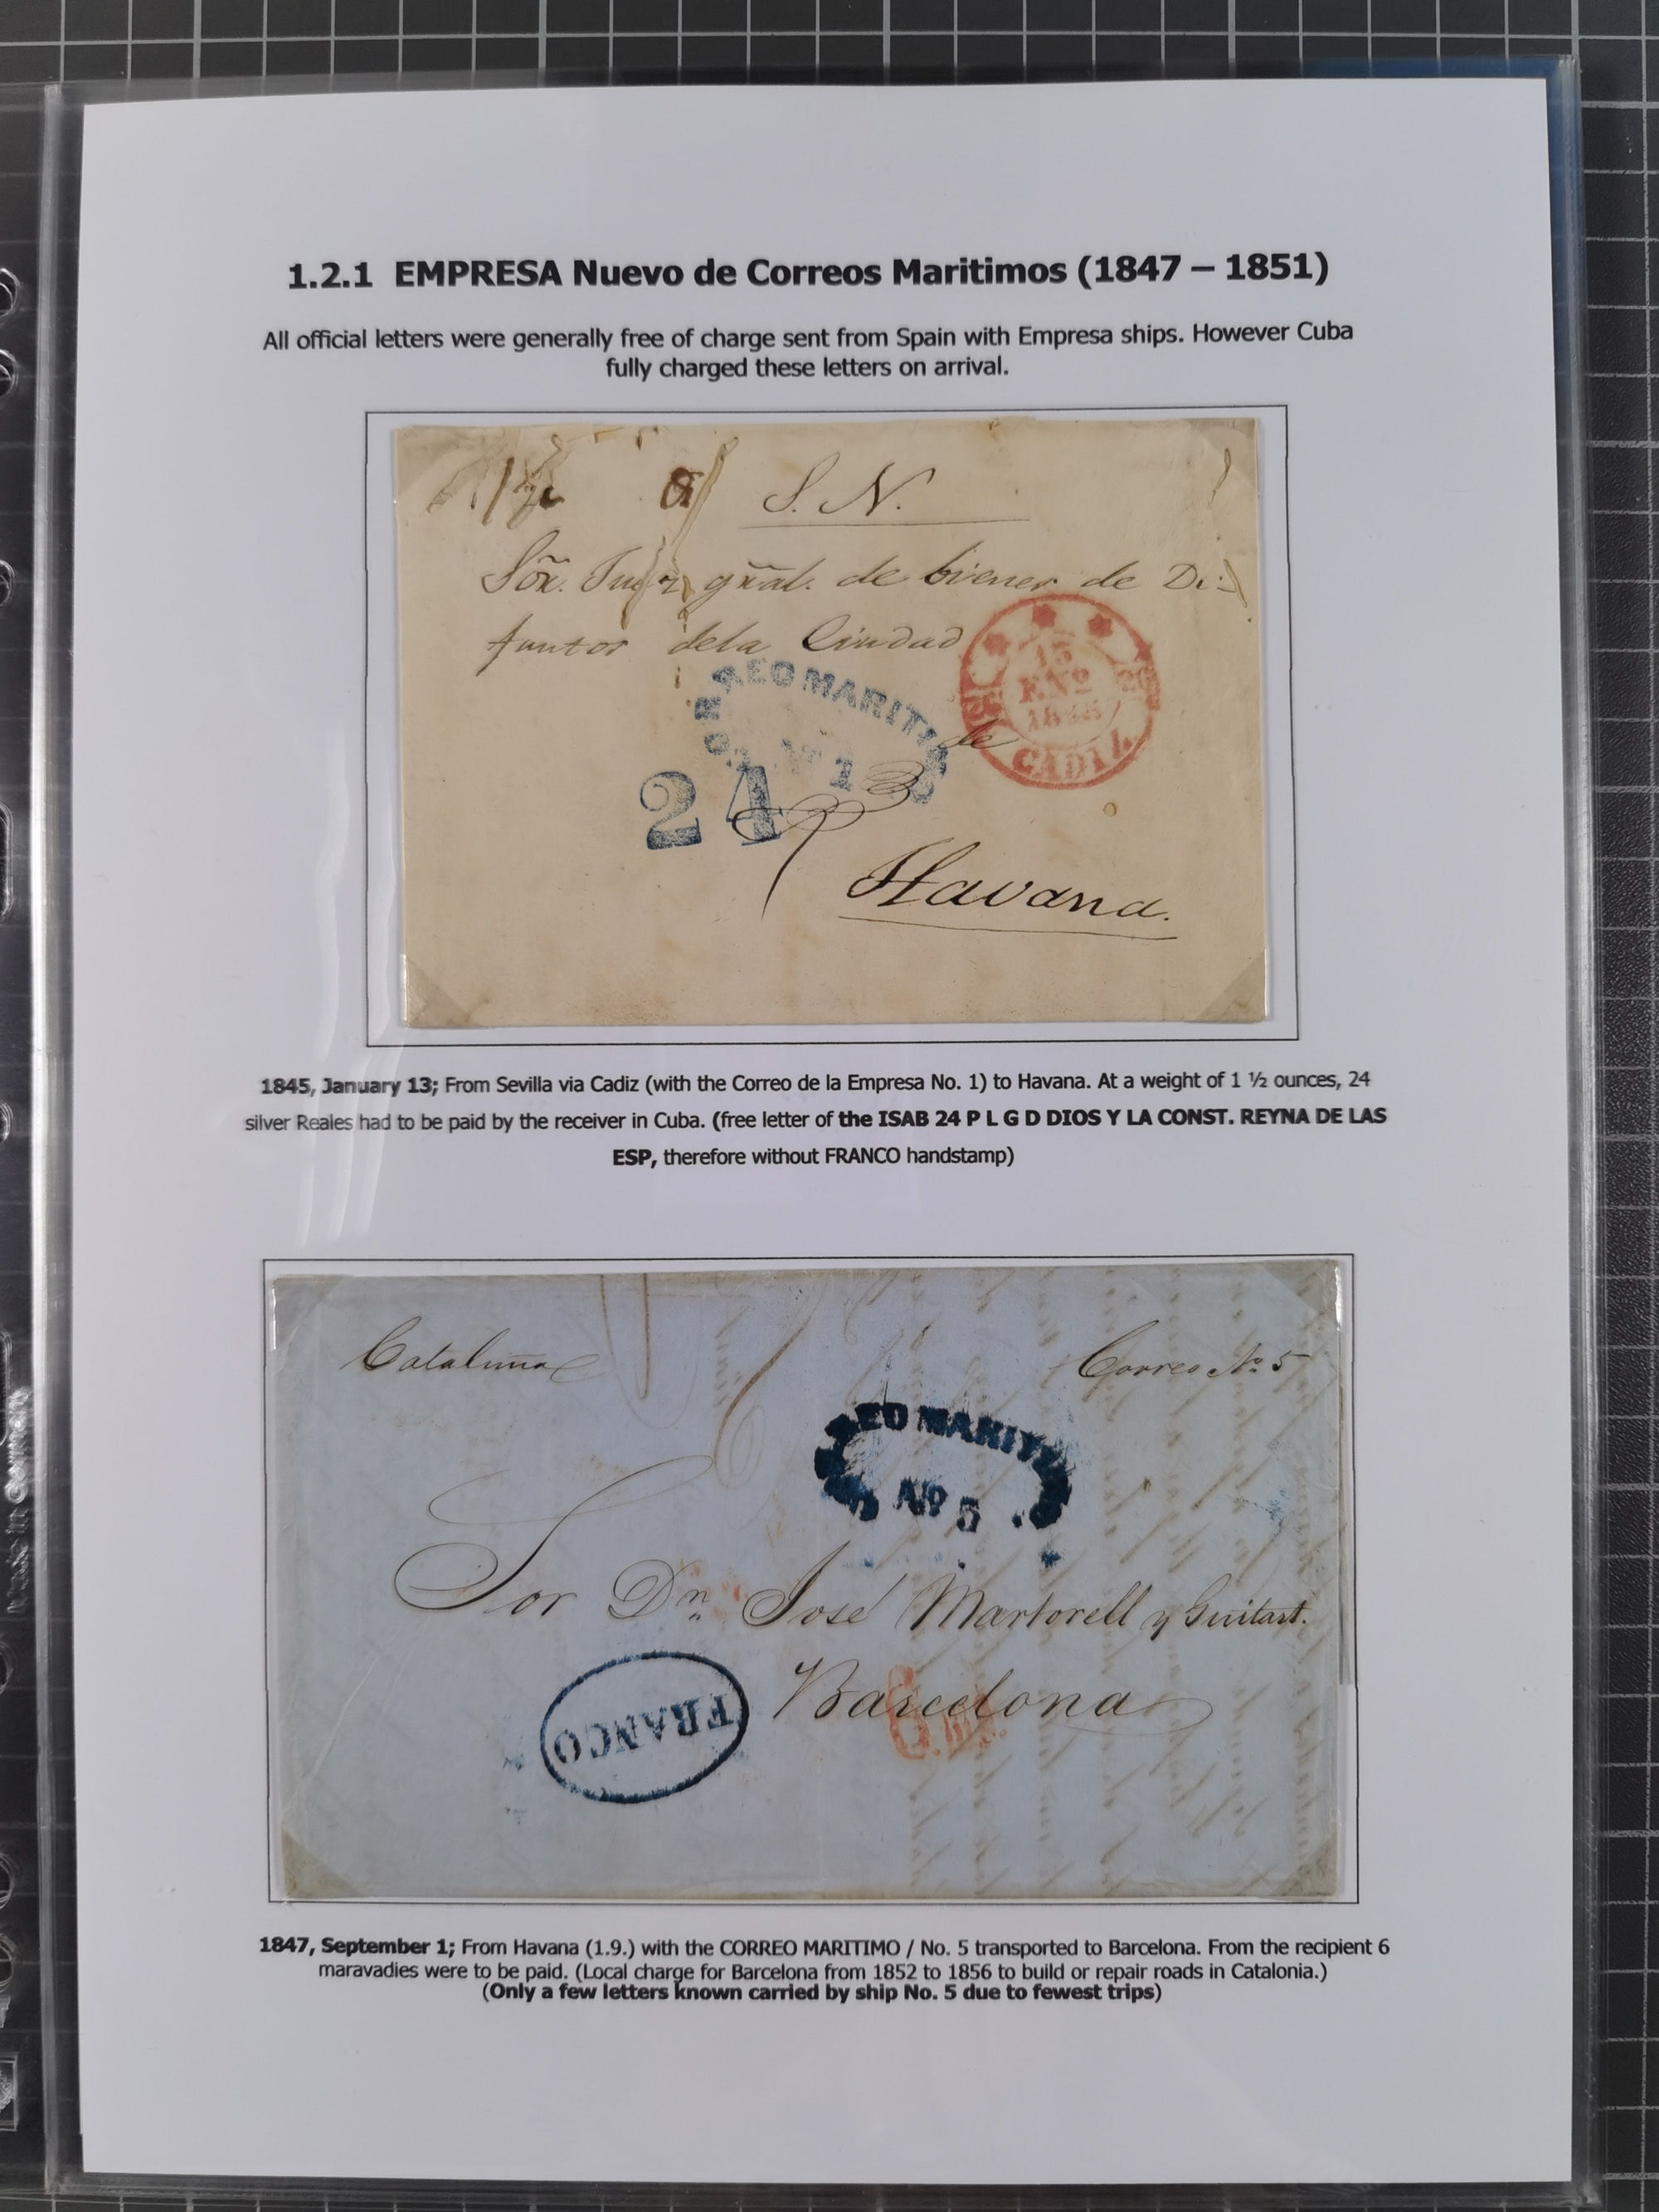 1.2.1 EMPRESA Nuevo de Correos Maritimos (1847 – 1851)
All official letters were generally free of charge sent from Spain with Empresa ships. However Cuba
fully charged these letters on arrival.
S. N.
Sõr. Juez gñal. de bienes de Di-
funtos dela Ciudad
de
Havana.
CORREO MARITIMO
Nº 1
24
13
ENº
CADIZ
1845, January 13; From Sevilla via Cadiz (with the Correo de la Empresa No. 1) to Havana. At a weight of 1 ½ ounces, 24
silver Reales had to be paid by the receiver in Cuba. (free letter of the ISAB 24 P L G D DIOS Y LA CONST. REYNA DE LAS
ESP, therefore without FRANCO handstamp)
Cataluña
Correo Nº 5
CORREO MARITIMO
Nº 5
Sor Dn José Martorell y Guitart.
Barcelona
FRANCO
6.
1847, September 1; From Havana (1.9.) with the CORREO MARITIMO / No. 5 transported to Barcelona. From the recipient 6
maravadies were to be paid. (Local charge for Barcelona from 1852 to 1856 to build or repair roads in Catalonia.)
(Only a few letters known carried by ship No. 5 due to fewest trips)